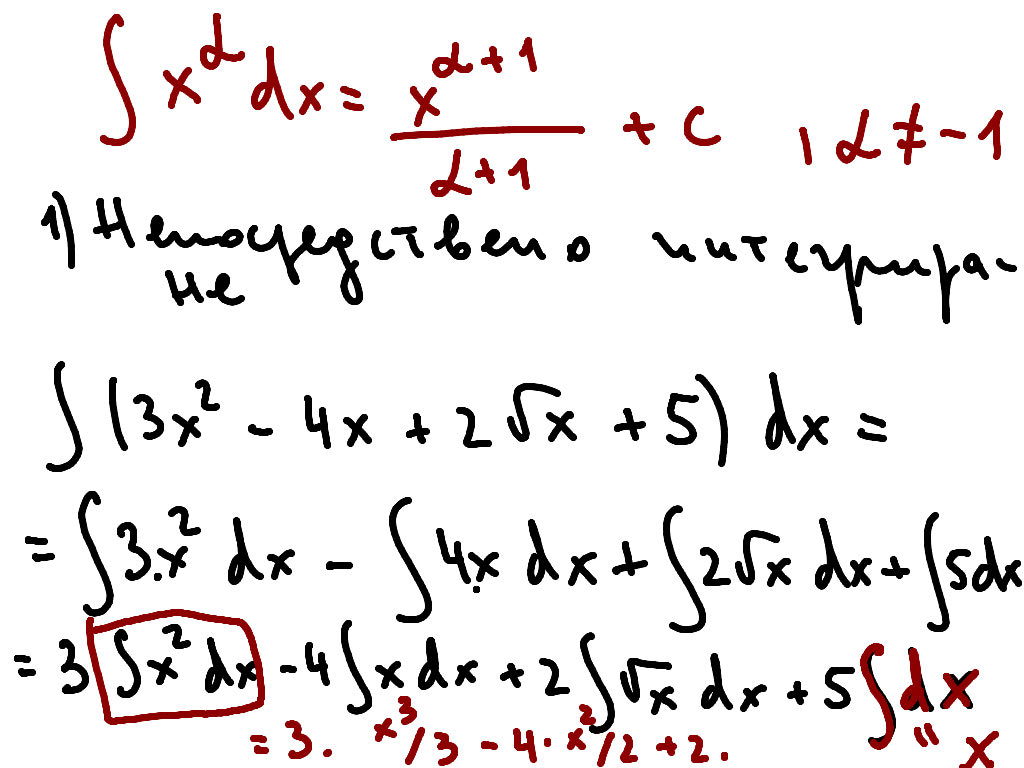 ∫ x^α dx = x^(α+1)/(α+1) + C , α ≠ -1
1) Непосредствено интегрира-
не
∫ (3x² - 4x + 2√x + 5) dx =
= ∫ 3.x² dx - ∫ 4.x dx + ∫ 2√x dx + ∫ 5dx
= 3 ∫ x² dx - 4 ∫ x dx + 2 ∫ √x dx + 5 ∫ dx
= 3. x³/3 - 4. x²/2 + 2. " x